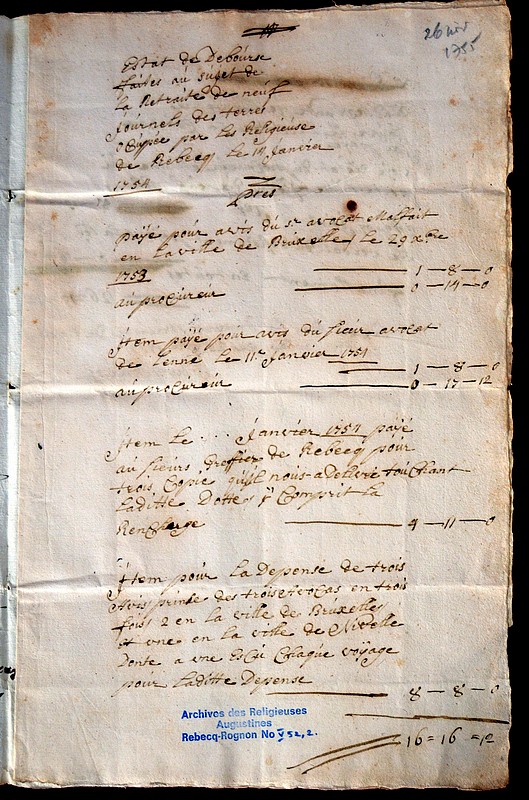 26 nov
1755
Estat de Debourse
faites au sujet de
la Retraite de neuf
Journels des terres
ocupée par les Religieuse
de Rebecq le 14 Janvier
1754
payé pour avis du sr avocat Malfait
en la ville de Bruxelles le 29 xbre
1753 1 - 8 - 0
au procureur 0 - 14 - 0
Item payé pour avis du sieur avocat
de Lenne le 11e Janvier 1751
1 - 8 - 0
au procureur 0 - 17 - 12
Item le .... Janvier 1754 payé
au sieurs Greffier de Rebecq pour
trois Copie qu'il nous a delivré touchant
laditte Dotte y Comprit la
Rencherge 4 - 11 - 0
Item pour la Depense de trois
Avis prinse des trois Avocas en trois
fois 2 en la ville de Bruxelles
et vne en la ville de Nivelle
Donte a vne Escu Chaque voÿage
pour laditte Depense 8 - 8 - 0
16 = 16 = 12
Archives des Religieuses
Augustines
Rebecq-Rognon No V 52, 2.